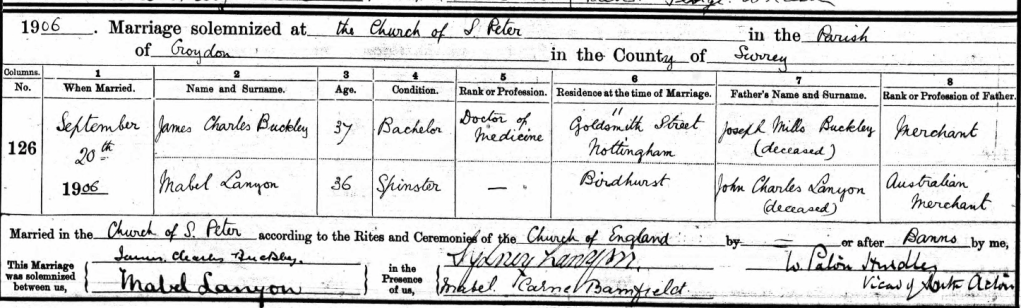 1906. Marriage solemnized at the Church of S. Peter in the Parish
of Croydon in the County of Surrey
Columns. 1 2 3 4 5 6 7 8
No. When Married. Name and Surname. Age. Condition. Rank or Profession. Residence at the time of Marriage. Father's Name and Surname. Rank or Profession of Father.
126 September 20th 1906
James Charles Buckley 37 Bachelor Doctor of Medicine Goldsmith Street Nottingham Joseph Mills Buckley (deceased) Merchant
Mabel Lanyon 36 Spinster — Birdhurst John Charles Lanyon (deceased) Australian Merchant
Married in the Church of S. Peter according to the Rites and Ceremonies of the Church of England by — or after Banns by me,
This Marriage was solemnized between us,
James Charles Buckley.
Mabel Lanyon
in the Presence of us,
Sydney Lanyon.
Mabel Carne Bamfield.
W. Paton
Vicar of South Acton